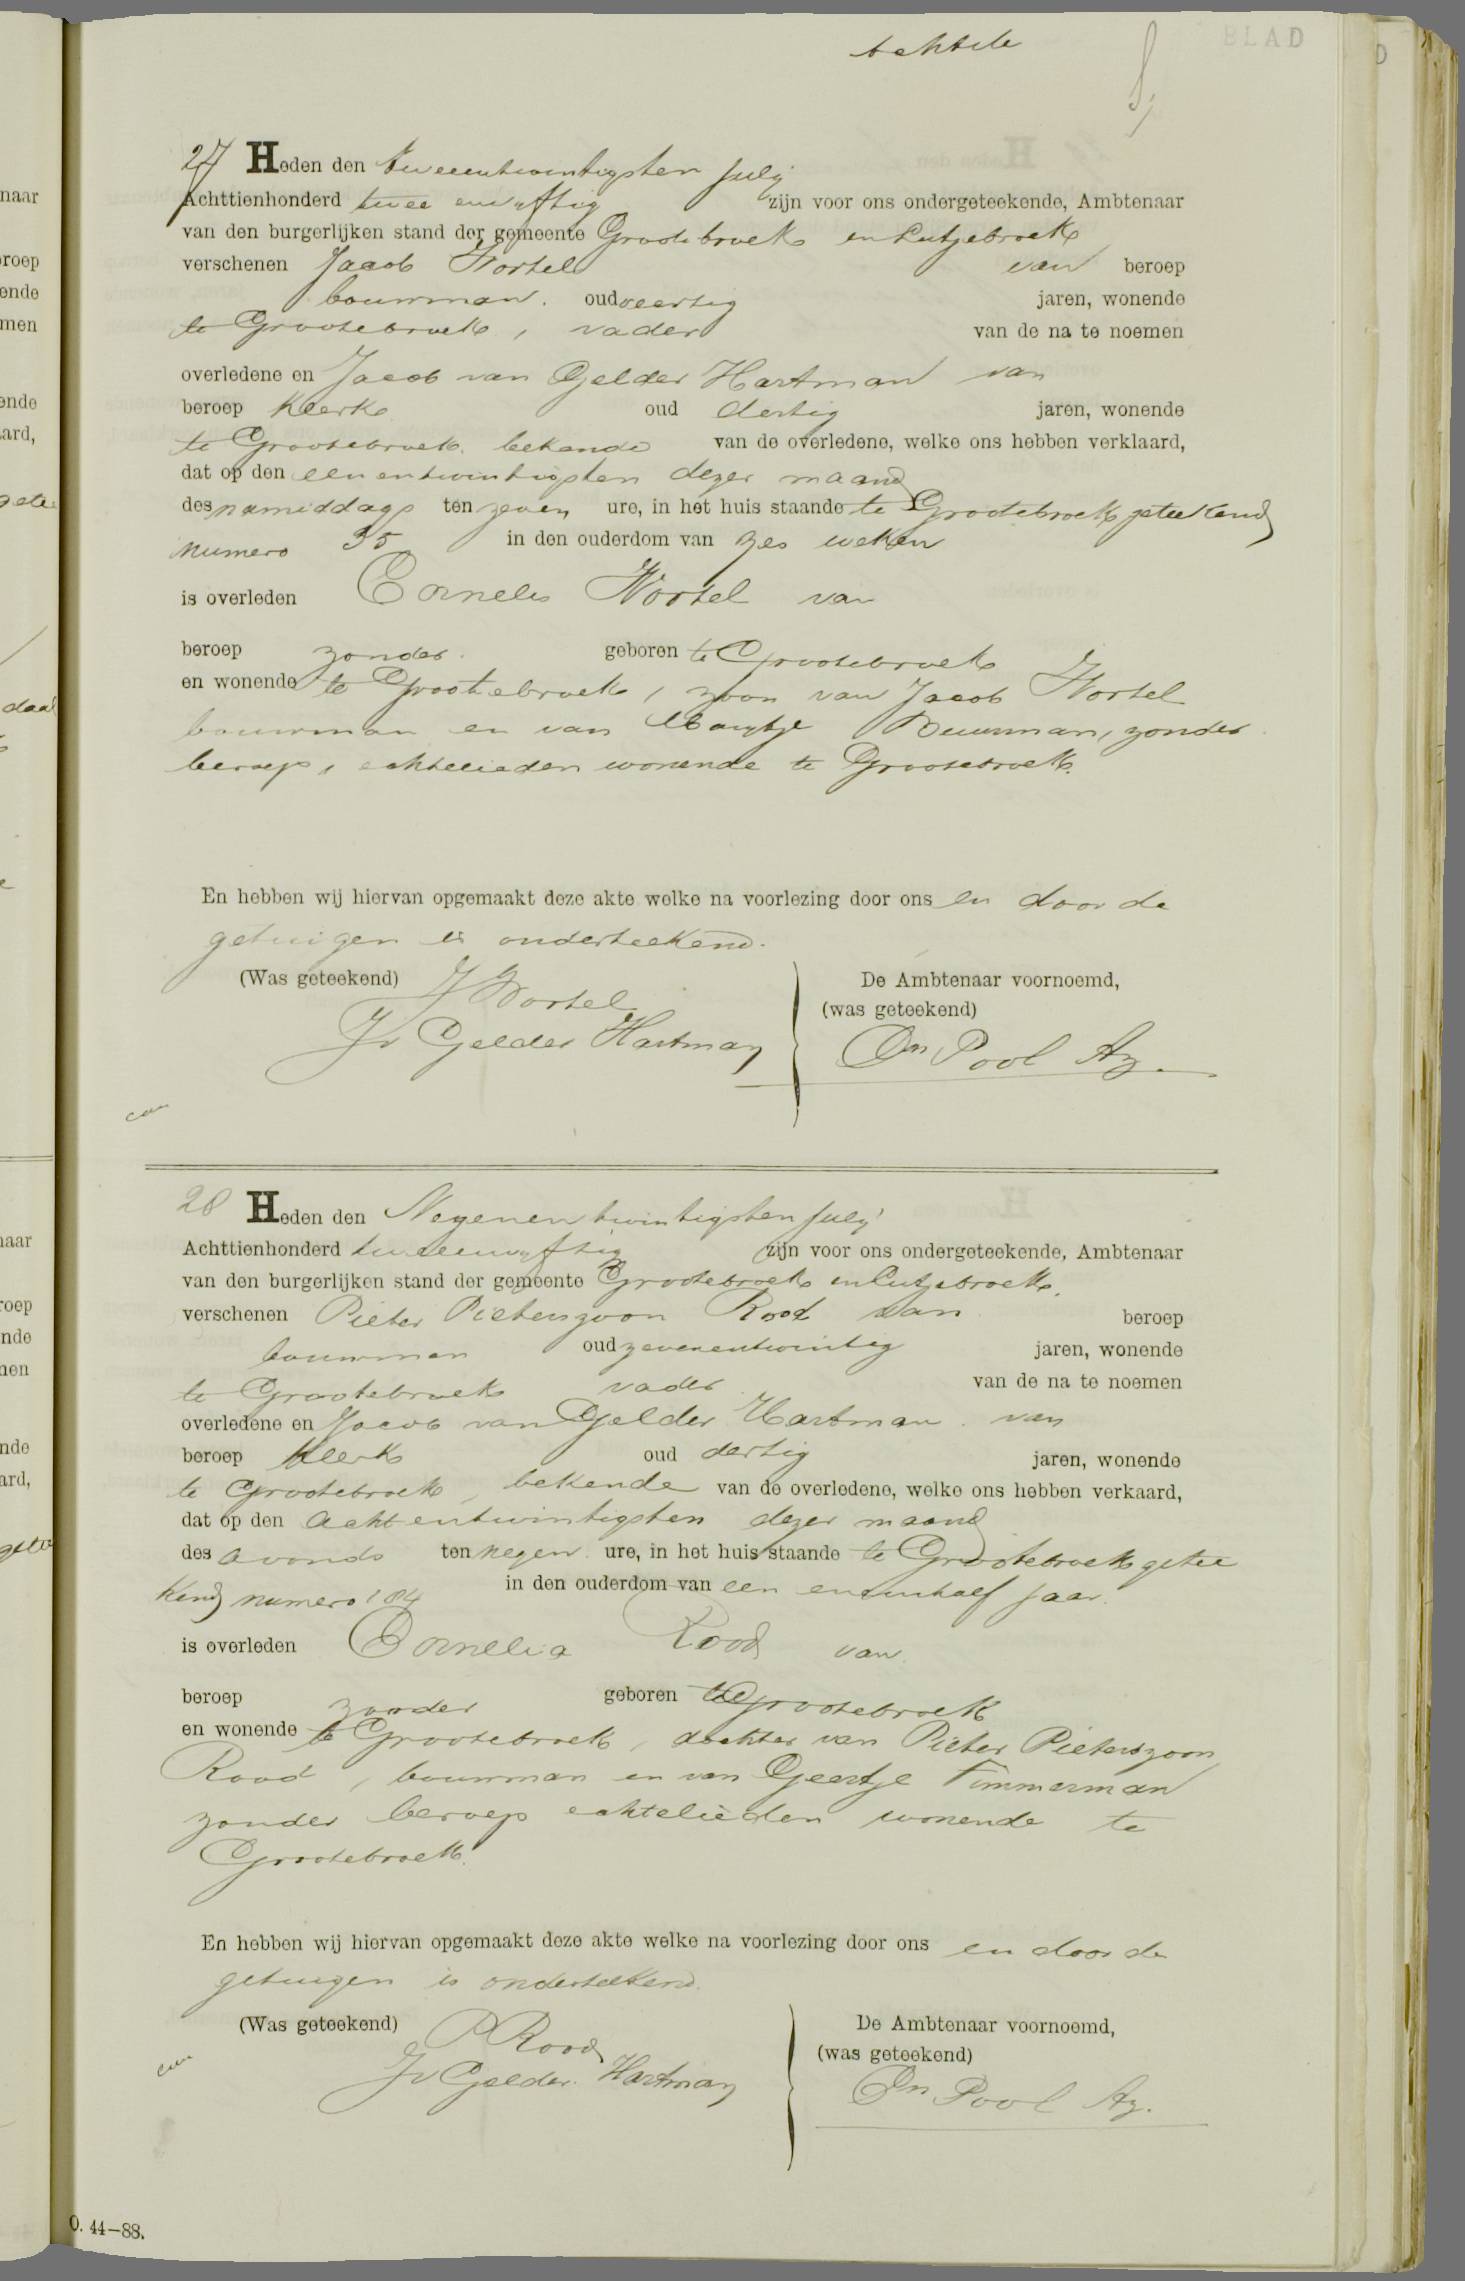 achtste
8
BLAD
27 Heden den tweeentwintigsten July
Achttienhonderd twee envyftig zijn voor ons ondergeteekende, Ambtenaar
van den burgerlijken stand der gemeente Grootebroek en Lutjebroek
verschenen Jacob Wortel van beroep
bouwman. oud veertig jaren, wonende
te Grootebroek, vader van de na te noemen
overledene en Jacob van Gelder Hartman van
beroep klerk oud dertig jaren, wonende
te Grootebroek. bekende van de overledene, welke ons hebben verklaard,
dat op den eenentwintigsten dezer maand
des namiddags ten zeven ure, in het huis staande te Grootebroek geteekend
numero 35 in den ouderdom van zes weken
is overleden Cornelis Wortel van
beroep zonder. geboren te Grootebroek
en wonende te Grootebroek, zoon van Jacob Wortel
bouwman en van Maytje Buurman, zonder
beroep, echtelieden wonende te Grootebroek.
En hebben wij hiervan opgemaakt deze akte welke na voorlezing door ons en door de
getuigen is onderteekend.
(Was geteekend) J Wortel
Jv Gelder Hartman
De Ambtenaar voornoemd,
(was geteekend)
Cn Pool Az.
28 Heden den Negenentwintigsten July
Achttienhonderd tweeenvyftig zijn voor ons ondergeteekende, Ambtenaar
van den burgerlijken stand der gemeente Grootebroek en Lutjebroek.
verschenen Pieter Pieterszoon Rood van beroep
bouwman oud zevenentwintig jaren, wonende
te Grootebroek vader van de na te noemen
overledene en Jacob van Gelder Hartman. van
beroep klerk oud dertig jaren, wonende
te Grootebroek, bekende van de overledene, welke ons hebben verkaard,
dat op den achtentwintigsten dezer maand
des avonds ten negen ure, in het huis staande te Grootebroek getee
kend numero 184 in den ouderdom van een eneenhalf jaar.
is overleden Cornelia Rood van
beroep zonder geboren te Grootebroek
en wonende te Grootebroek, dochter van Pieter Pieterszoon
Rood, bouwman en van Geertje Timmerman
zonder beroep echtelieden wonende te
Grootebroek.
En hebben wij hiervan opgemaakt deze akte welke na voorlezing door ons en door de
getuigen is onderteekend.
(Was geteekend) P Rood
Jv Gelder Hartman
De Ambtenaar voornoemd,
(was geteekend)
Cn Pool Az.
O. 44—88.